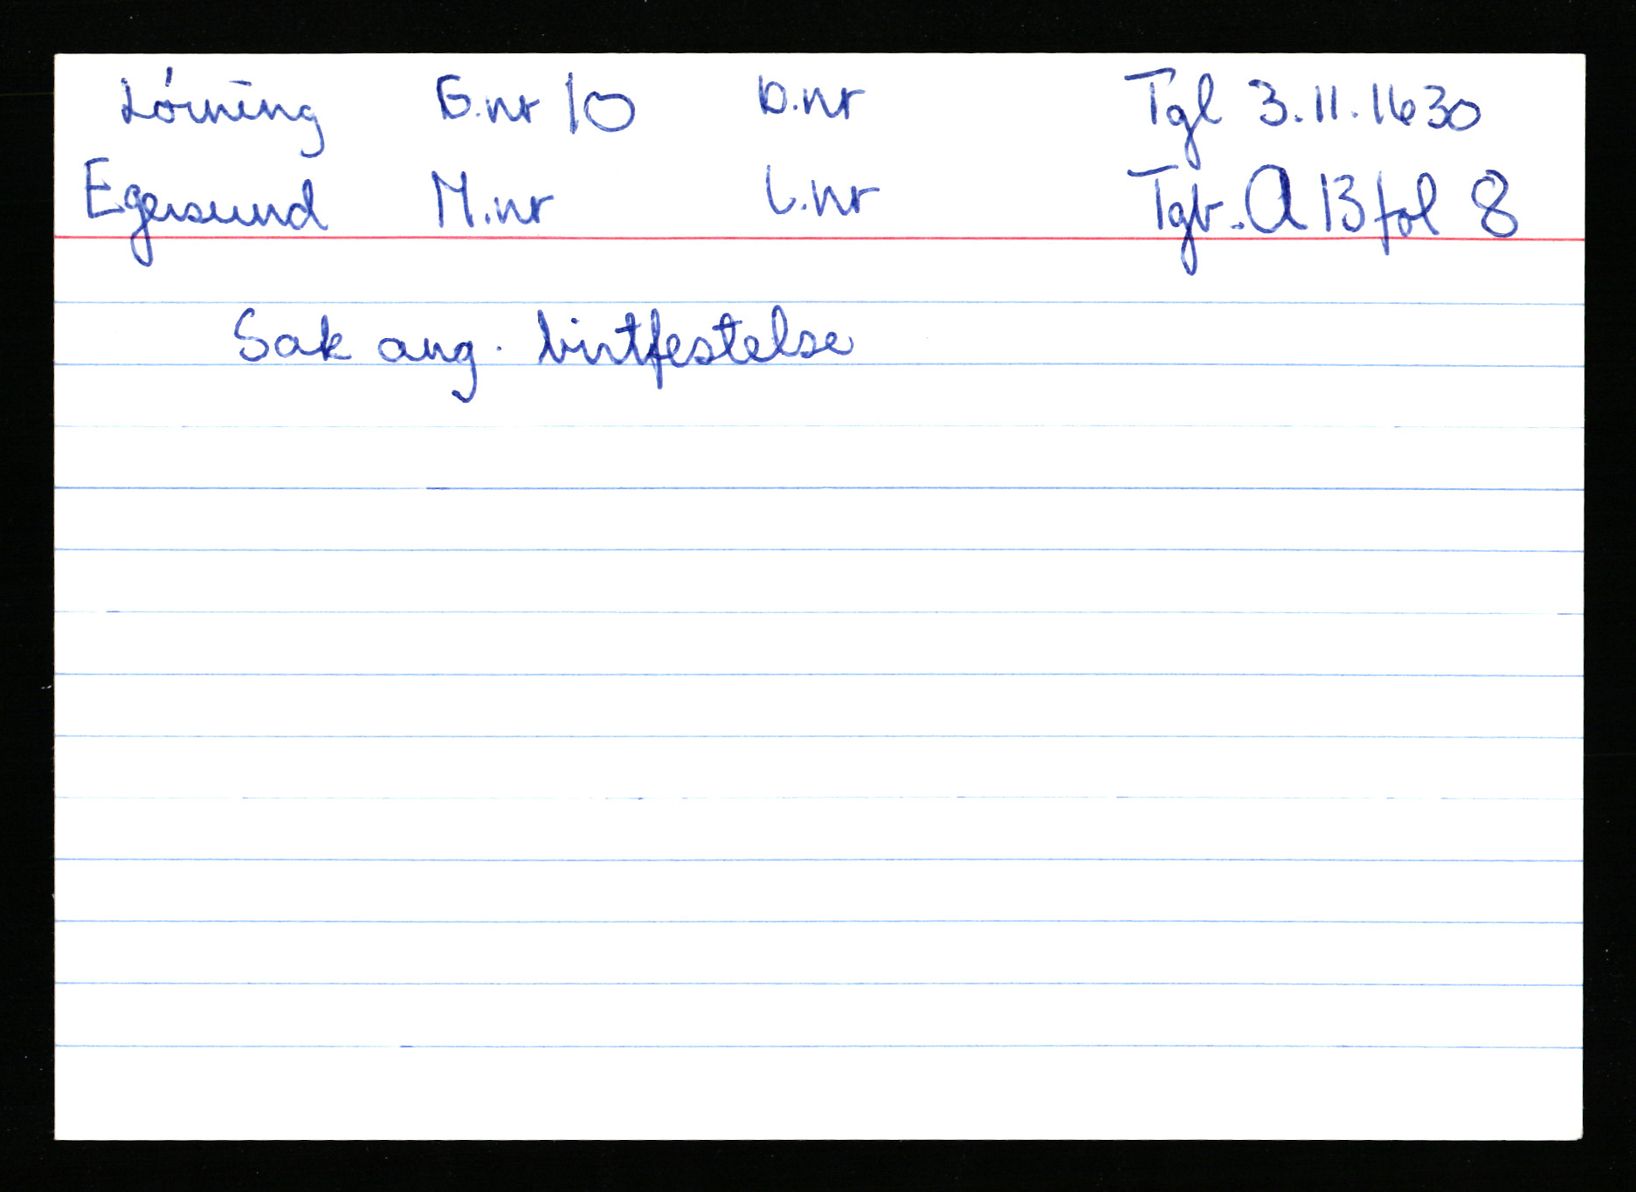 Lóining G.nr 10 b.nr Tgl 3.11.1630
Egersund M.nr L.nr Tgb. A 13 fol 8
Sak ang. bortfestelse